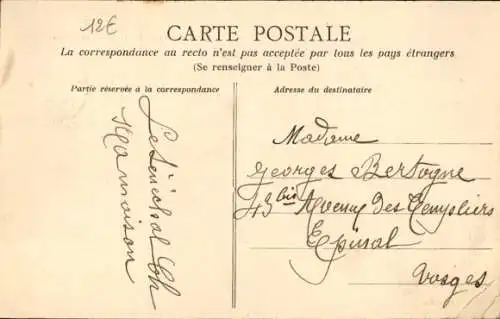 12€
CARTE POSTALE
La correspondance au recto n'est pas acceptée par tous les pays étrangers
(Se renseigner à la Poste)
Partie réservée à la correspondance
Adresse du destinataire
LeSénéchal Ch
K_maison
Madame
Georges Bertogne
43bis Avenue des Templiers
Epinal
Vosges